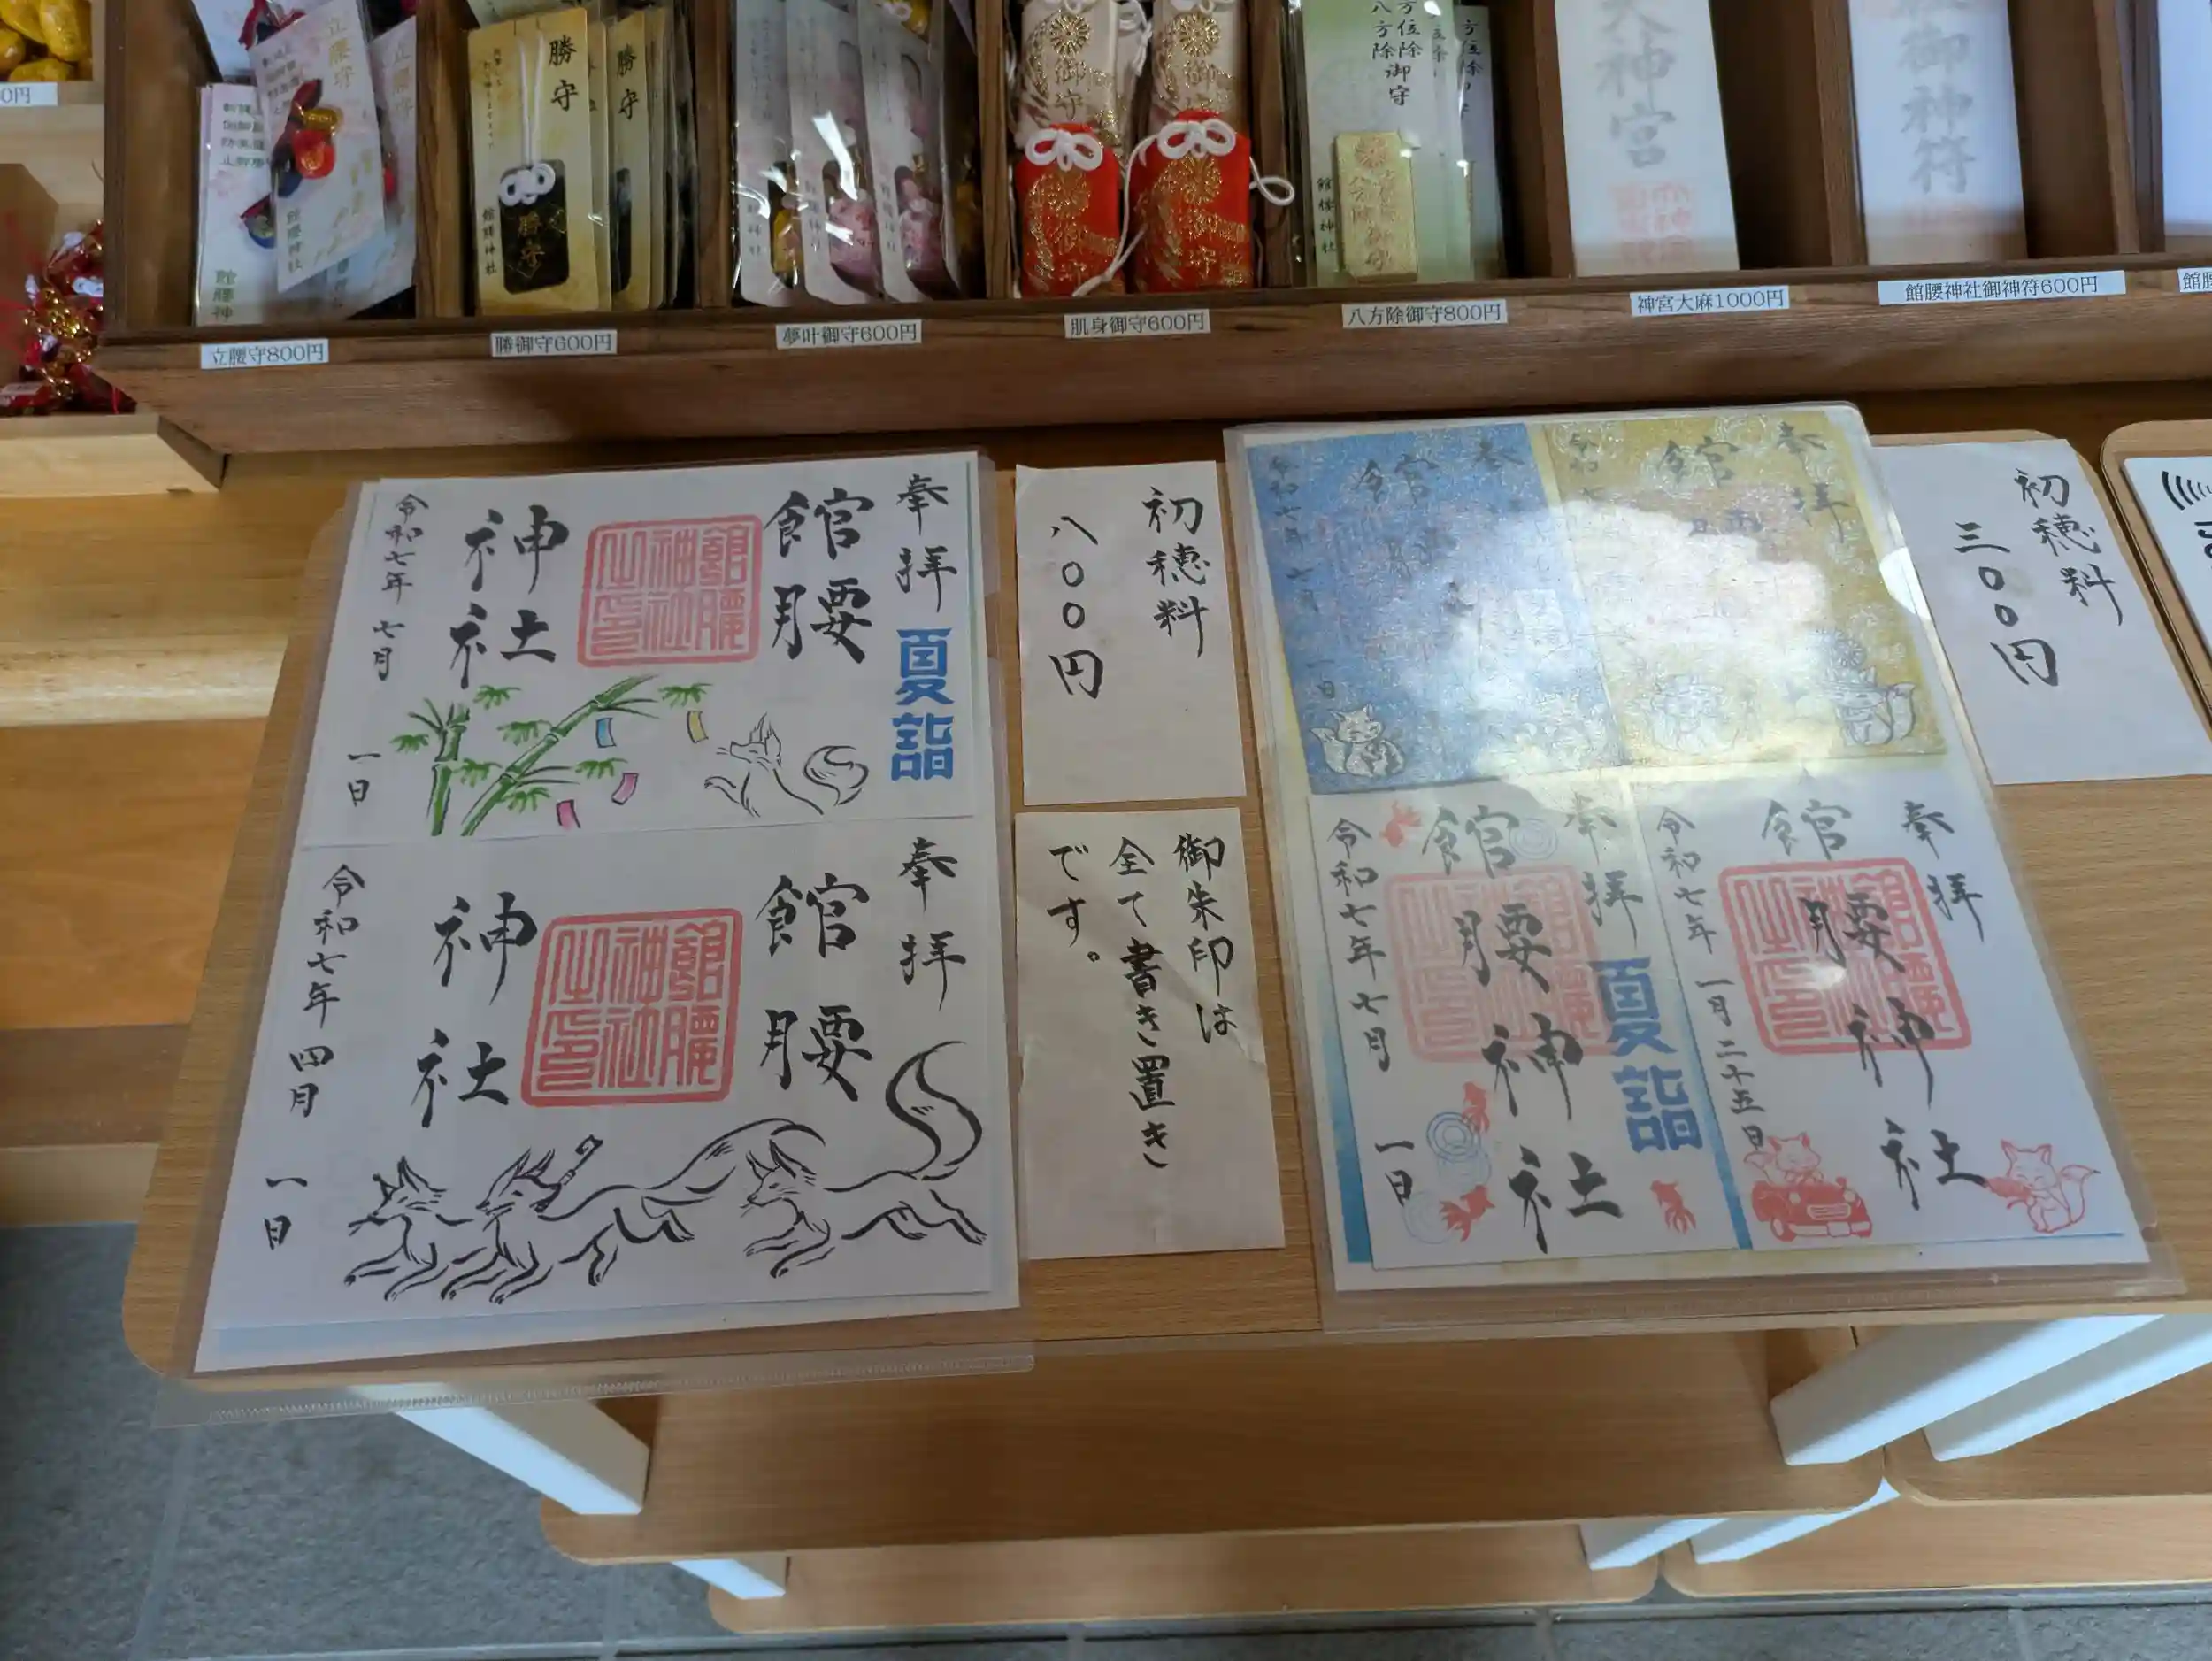 0円
立腰守
立腰守
館腰神社
館腰神
勝守
館腰神社
勝守
勝守
御守
御守
方位除
八方除御守
館腰神社
大神宮
御神符
立腰守800円
勝御守600円
夢叶御守600円
肌身御守600円
八方除御守800円
神宮大麻1000円
館腰神社御神符600円
奉拝
夏詣
館腰
神社
館腰神社之印
令和七年 七月 一日
奉拝
館腰
神社
館腰神社之印
令和七年 四月 一日
初穂料
八〇〇円
御朱印は
全て書き置き
です。
奉拝
館
奉拝
館腰
令和
初穂料
三〇〇円
奉拝
夏詣
館腰神社
令和七年 七月 一日
奉拝
館腰神社
令和七年 一月二十五日